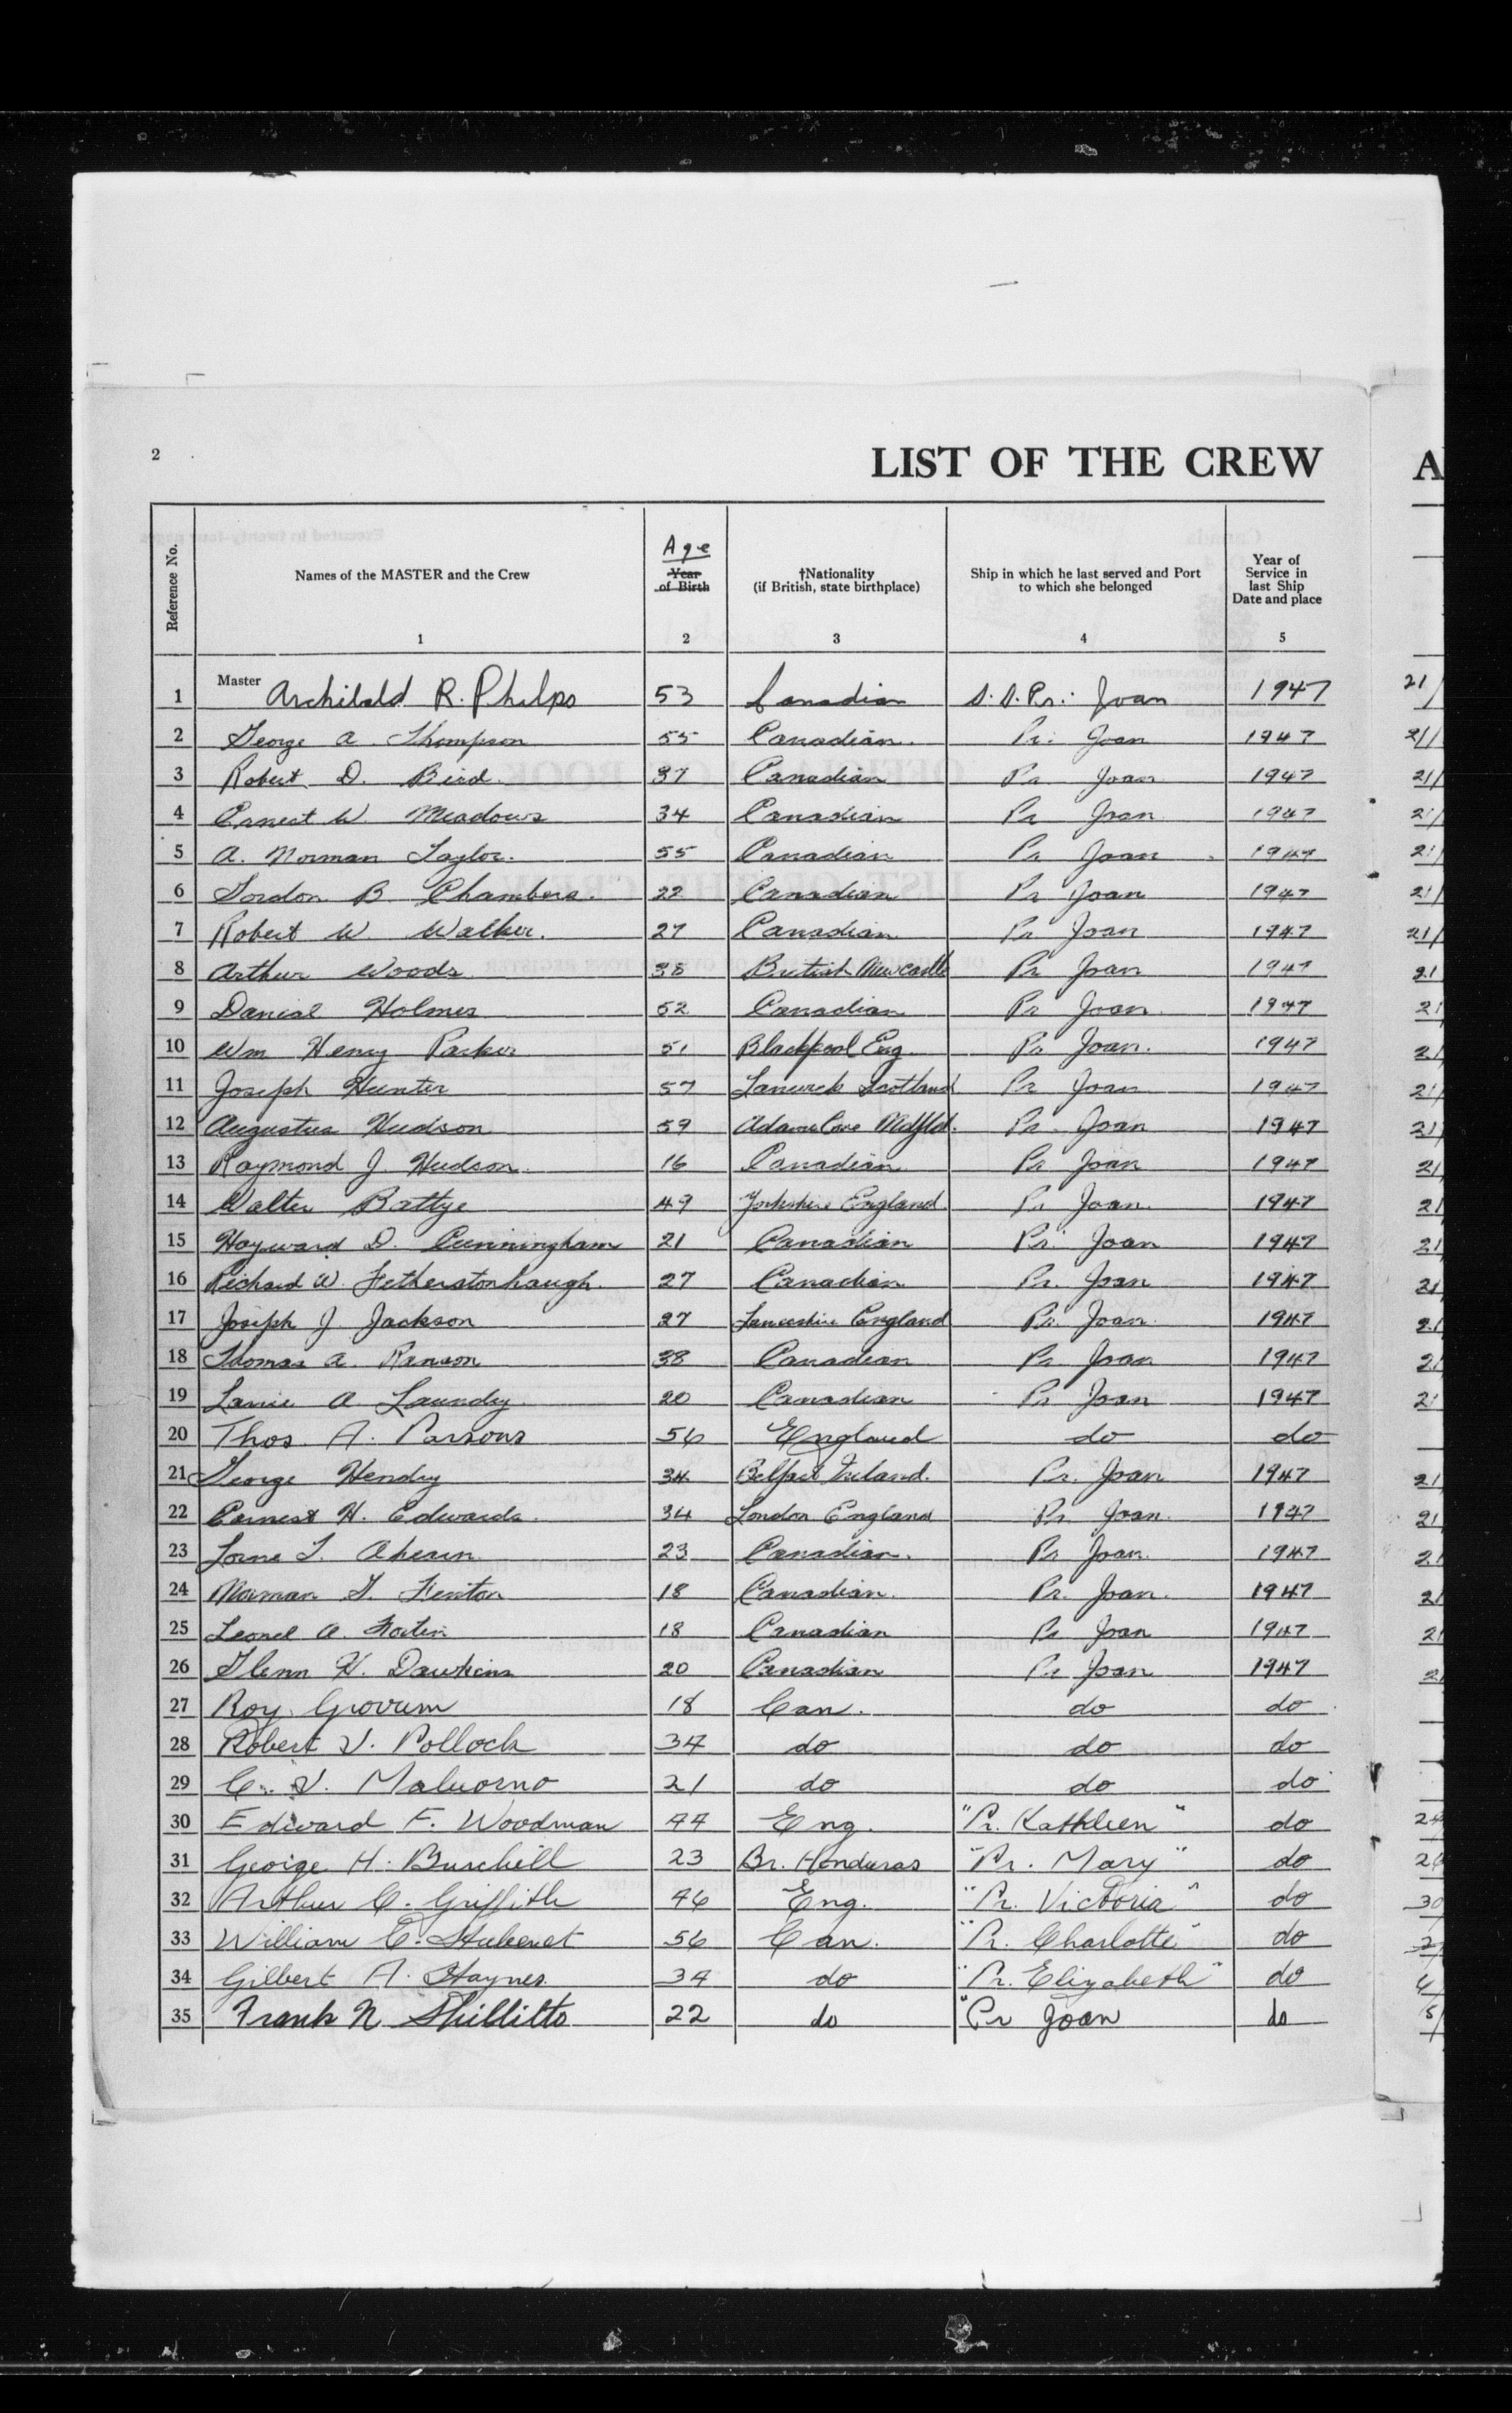 2
LIST OF THE CREW
A
Reference No.
Names of the MASTER and the Crew
Age
Year of Birth
†Nationality (if British, state birthplace)
Ship in which he last served and Port to which she belonged
Year of Service in last Ship Date and place
1 2 3 4 5
1 Master Archibald R. Phelps 53 Canadian S.S. Pr. Joan 1947 21/
2 George A. Thompson 55 Canadian. Pr. Joan 1947 21/
3 Robert D. Bird 37 Canadian Pr Joan 1947 21/
4 Ernest W. Meadows 34 Canadian Pr Joan 1947 21/
5 A. Norman Taylor. 55 Canadian Pr Joan 1947 21/
6 Gordon B Chambers. 22 Canadian Pr Joan 1947 21/
7 Robert W. Walker. 27 Canadian Pr Joan 1947 21/
8 Arthur Woods 38 British Newcastle Pr Joan 1947 21
9 Danial Holmes 52 Canadian Pr Joan 1947 21
10 Wm Henry Parker 51 Blackpool Eng. Pr Joan. 1947 21
11 Joseph Hunter 57 Lanwick Scotland Pr Joan 1947 21/
12 Augustus Hudson 59 Adams Cove Ndfld. Pr. Joan 1947 21
13 Raymond J. Hudson 16 Canadian Pr Joan 1947 21
14 Walter Battye 49 Yorkshire England Pr Joan. 1947 21
15 Hayward D. Cunningham 21 Canadian Pr. Joan 1947 21
16 Richard W. Fetherstonhaugh. 27 Canadian Pr. Joan 1947 21
17 Joseph J. Jackson 27 Lancashire England Pr. Joan 1947 21
18 Thomas A. Ranson 38 Canadian Pr Joan 1947 21
19 A Laundry 20 Canadian Pr Joan 1947 21
20 Thos. A. Parsons 56 England do do
21 George Hendry 34 Belfast Ireland. Pr. Joan 1947 21
22 Earnest H. Edwards. 34 London England Pr. Joan. 1947 21
23 Lorne Ahearn 23 Canadian. Pr Joan. 1947 21
24 Norman Fenton 18 Canadian. Pr. Joan. 1947 21
25 Leonel A. Fortin 18 Canadian Pr Joan 1947 21
26 Glenn H. Dawkins 20 Canadian Pr Joan 1947 21
27 Roy Grovum 18 Can. do do
28 Robert V. Pollock 34 do do do
29 21 do do do
30 Edward F. Woodman 44 Eng. "Pr. Kathleen" do
31 George H. Burchell 23 Br. Honduras "Pr. Mary" do
32 Arthur C. Griffith 46 Eng. "Pr. Victoria" do 30
33 William C. 56 Can. "Pr. Charlotte" do
34 Gilbert A. Haynes 34 do "Pr. Elizabeth" do 4
35 Frank N. Shillitto 22 do "Pr Joan do 5/